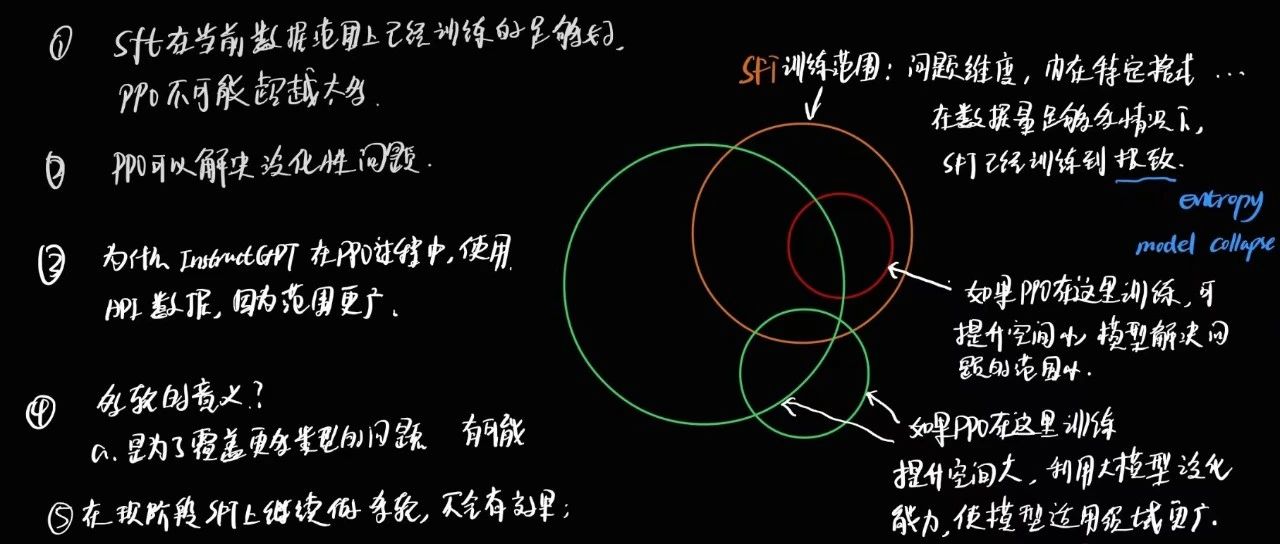 ① Sft 在当前数据范围上已经训练的足够好,
PPO 不可能超越太多.
② PPO可以解决泛化性问题.
③ 为什么 InstructGPT 在PPO过程中,使用
API 数据, 因为范围更广.
④ 多轮的意义?
a. 是为了覆盖更多类型的问题 有可能
⑤ 在现阶段 SFT上继续做多轮, 不会有效果;
SFT 训练范围: 问题维度, 内在特定格式 ...
在数据量足够多情况下,
SFT 已经训练到 极致.
entropy
model collapse
如果PPO在这里训练, 可
提升空间小, 模型解决问
题的范围小.
如果PPO在这里训练
提升空间大, 利用大模型泛化
能力, 使模型适用领域更广.